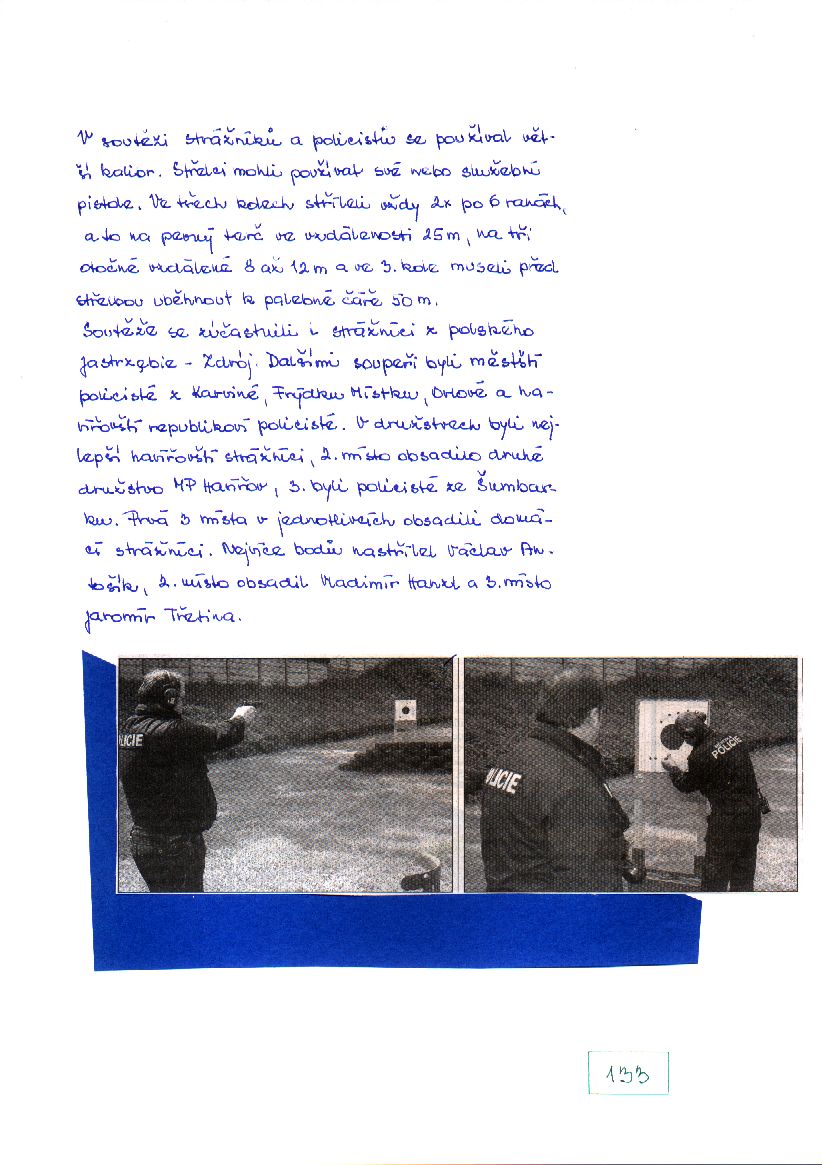 V soutěži strážníků a policistů se používal vět-
ší kalibr. Střelci mohli používat své nebo služební
pistole. Ve třech kolech stříleli vždy 2x po 6 ranách,
a to na pevný terč ve vzdálenosti 25m, na tři
otočné vzdálené 8 až 12m a ve 3. kole museli před
střelbou uběhnout k palebné čáře 50m.
Soutěže se zúčastnili i strážníci z polského
Jastrzębie - Zdrój. Dalšími soupeři byli městští
policisté z Karviné, Frýdku Místku, Orlové a ha-
vířovští republikoví policisté. V družstvech byli nej-
lepší havířovští strážníci, 2. místo obsadilo druhé
družstvo MP Havířov, 3. byli policisté ze Šumbar-
ku. Prvá 3 místa v jednotlivcích obsadili domá-
cí strážníci. Nejvíce bodů nastřílel Václav An-
tošík, 2. místo obsadil Vladimír Hanzl a 3. místo
Jaromír Třetina.
LICIE
OLICIE
POLICIE
133